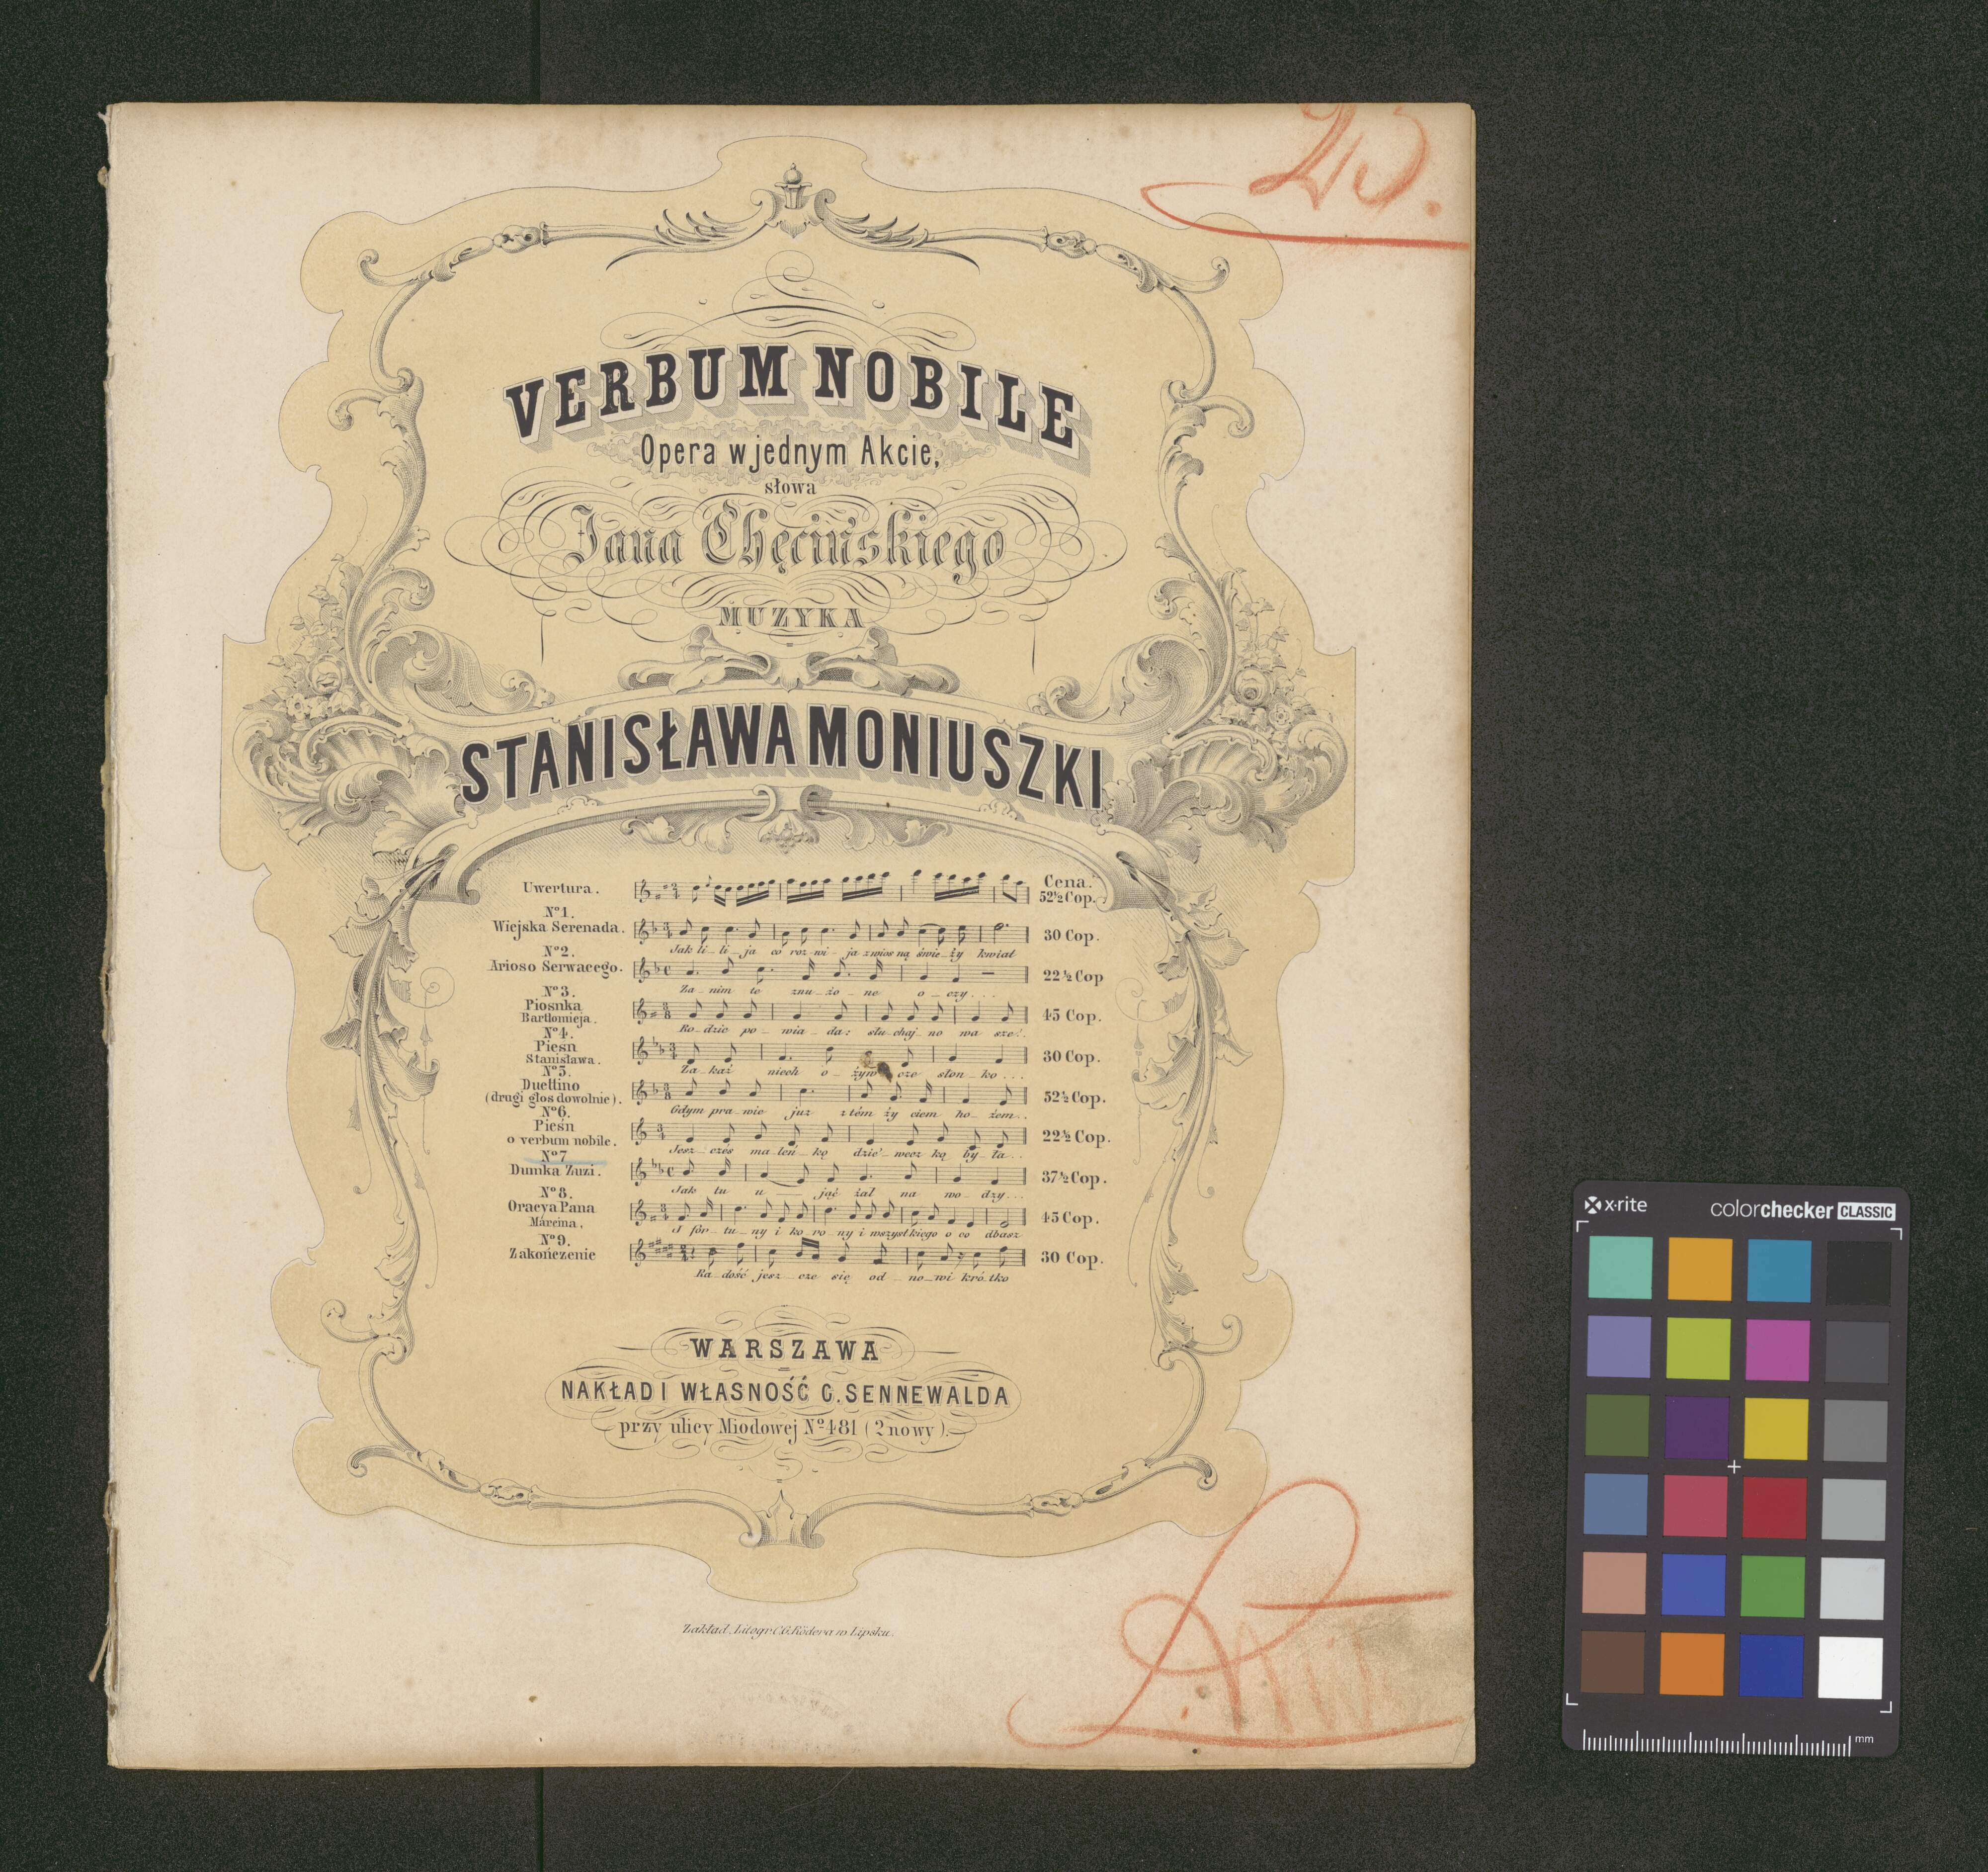 25.
VERBUM NOBILE
Opera w jednym Akcie,
słowa
Jana Chęcińskiego
MUZYKA
STANISŁAWA MONIUSZKI
Uwertura.
Cena.
52½ Cop.
No 1.
Wiejska Serenada.
30 Cop.
Jak li_li_ja co roz_wi_ja z wios ną świe_ży kwiat
No 2.
Arioso Serwacego.
22½ Cop
Za_nim te znu_żo_ne o_czy...
No 3.
Piosnka
Bartłomieja.
45 Cop.
Ro_dzic po_wia_da: słu_chaj_no wa sze!.
No 4.
Pieśn
Stanisława.
30 Cop.
Za_każ niech o_żyw cze słon_ko...
No 5.
Duettino
(drugi głos dowolnie).
52½ Cop.
Gdym pra_wie juz z tém ży ciem ho_żem..
No 6.
Pieśn
o verbum nobile.
22½ Cop.
Jesz_cześ ma_leń_ką dzie_wecz ką by_ła..
No 7
Dumka Zuzi.
37½ Cop.
Jak tu u_jąć żal na wo_dzy...
No 8.
Oracya Pana
Márcina.
45 Cop.
I for_tu_ny i ko_ro_ny i wszystkiego o co dbasz
No 9.
Zakończenie
30 Cop.
Ra_dość jesz_cze się od_no_wi kró_tko
WARSZAWA
NAKŁAD I WŁASNOŚĆ G. SENNEWALDA
przy ulicy Miodowej No 481 (2 nowy).
Zakład Litogr. C.G. Rödera w Lipsku.
x·rite
colorchecker CLASSIC
mm